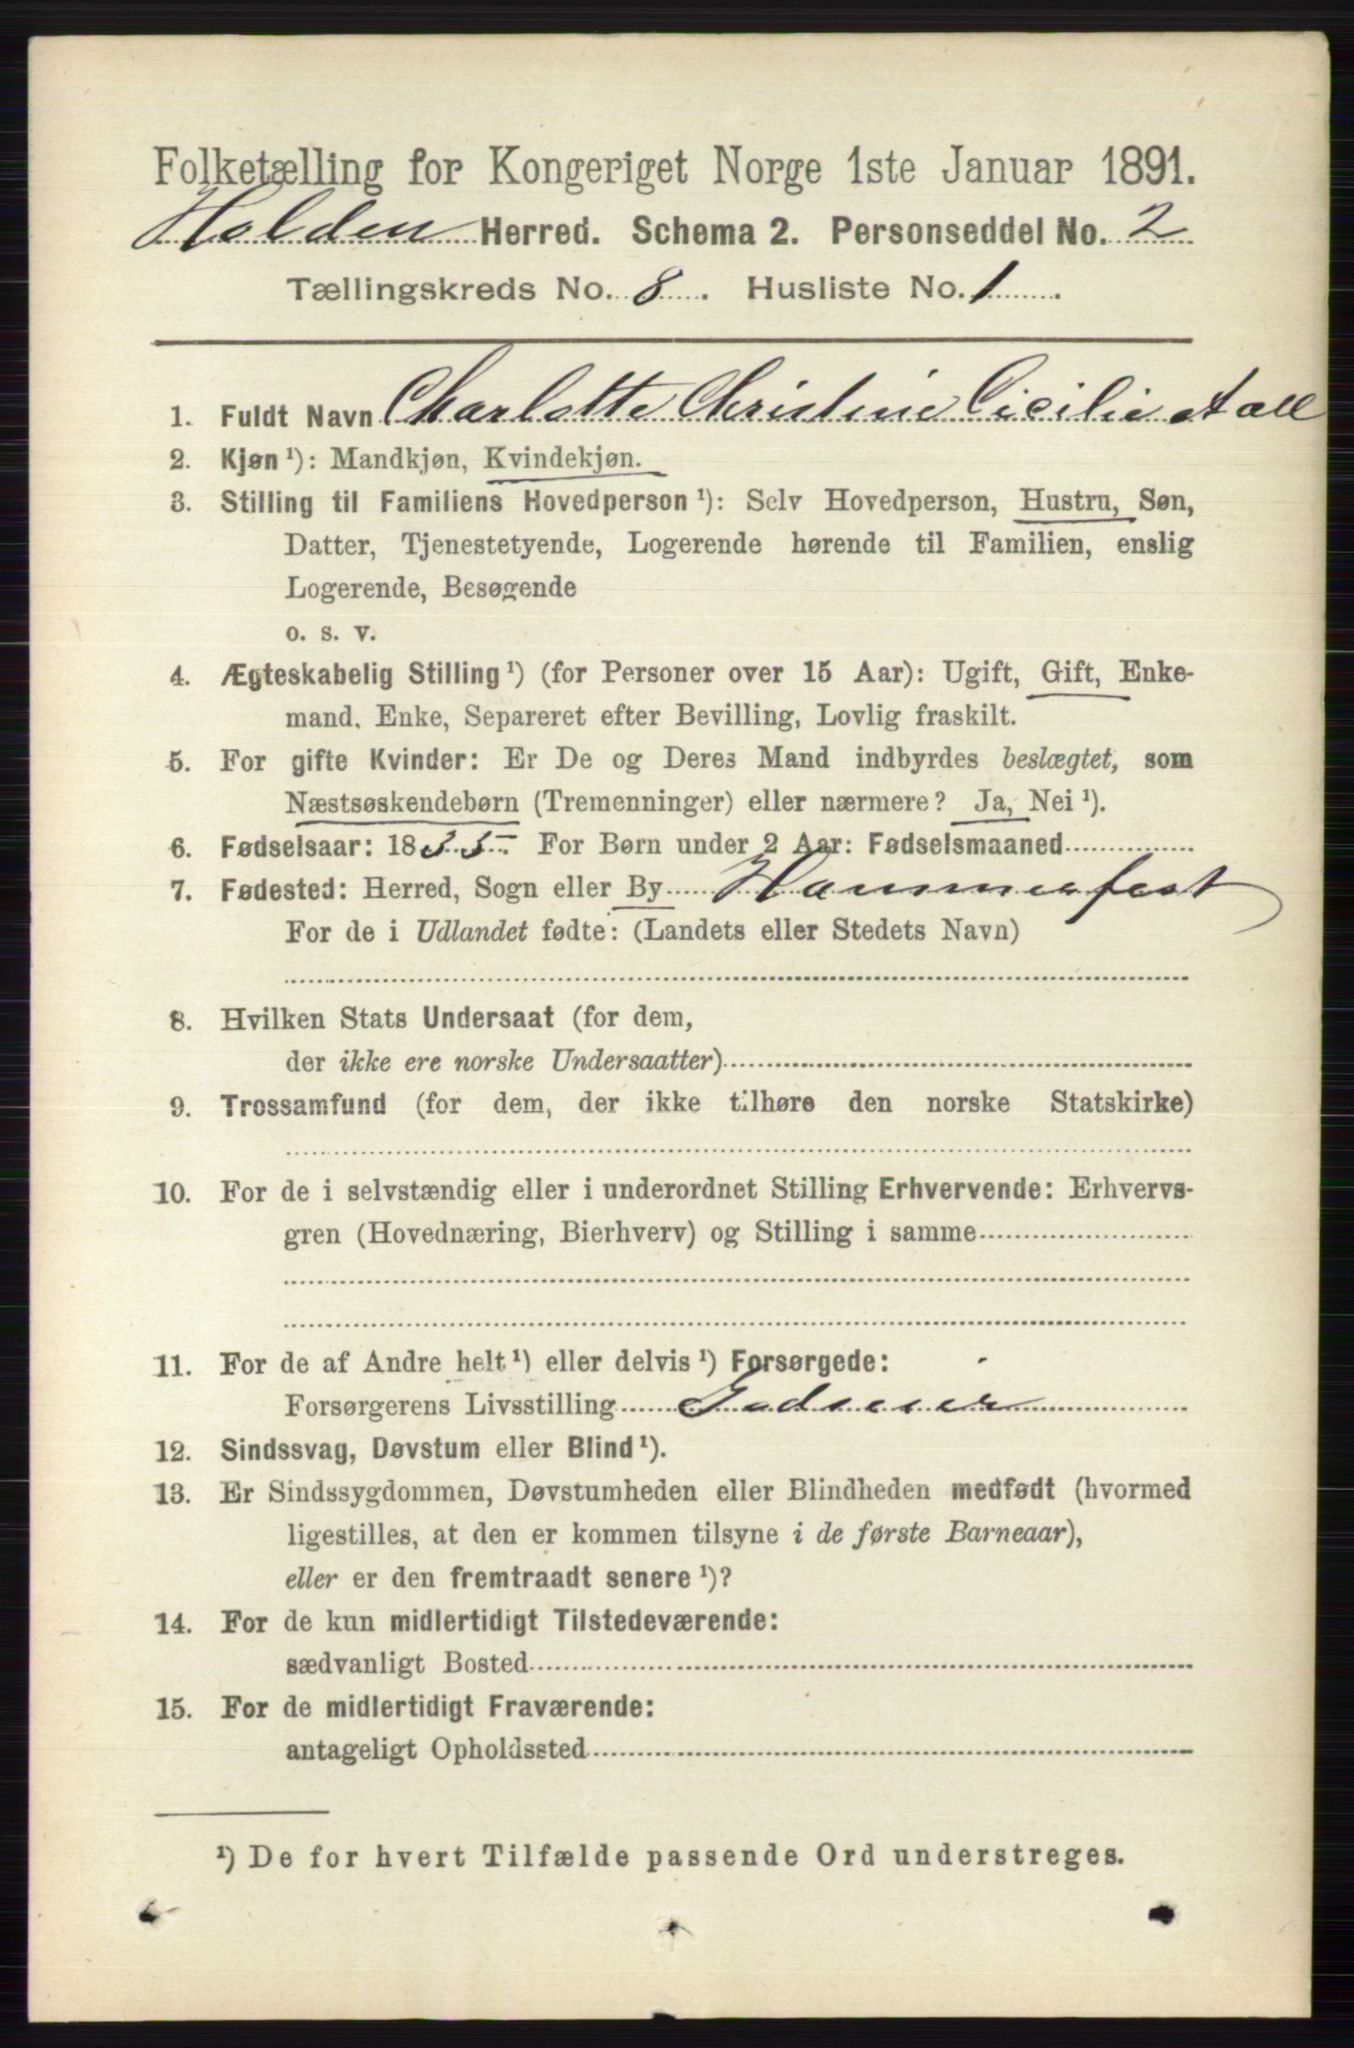 Folketælling for Kongeriget Norge 1ste Januar 1891.
Holden Herred. Schema 2. Personseddel No. 2
Tællingskreds No. 8. Husliste No. 1.
1. Fuldt Navn Charlotte Christine Cicilie Aall
2. Kjøn ¹): Mandkjøn, Kvindekjøn.
3. Stilling til Familiens Hovedperson ¹): Selv Hovedperson, Hustru, Søn,
Datter, Tjenestetyende, Logerende hørende til Familien, enslig
Logerende, Besøgende
o. s. v.
4. Ægteskabelig Stilling ¹) (for Personer over 15 Aar): Ugift, Gift, Enke-
mand, Enke, Separeret efter Bevilling, Lovlig fraskilt.
5. For gifte Kvinder: Er De og Deres Mand indbyrdes beslægtet, som
Næstsøskendebørn (Tremenninger) eller nærmere? Ja, Nei ¹).
6. Fødselsaar: 1835. For Børn under 2 Aar: Fødselsmaaned
7. Fødested: Herred, Sogn eller By Hammerfest
For de i Udlandet fødte: (Landets eller Stedets Navn)
8. Hvilken Stats Undersaat (for dem,
der ikke ere norske Undersaatter)
9. Trossamfund (for dem, der ikke tilhøre den norske Statskirke)
10. For de i selvstændig eller i underordnet Stilling Erhvervende: Erhvervs-
gren (Hovednæring, Bierhverv) og Stilling i samme
11. For de af Andre helt ¹) eller delvis ¹) Forsørgede:
Forsørgerens Livsstilling Godseier
12. Sindssvag, Døvstum eller Blind ¹).
13. Er Sindssygdommen, Døvstumheden eller Blindheden medfødt (hvormed
ligestilles, at den er kommen tilsyne i de første Barneaar),
eller er den fremtraadt senere ¹)?
14. For de kun midlertidigt Tilstedeværende:
sædvanligt Bosted
15. For de midlertidigt Fraværende:
antageligt Opholdssted
¹) De for hvert Tilfælde passende Ord understreges.